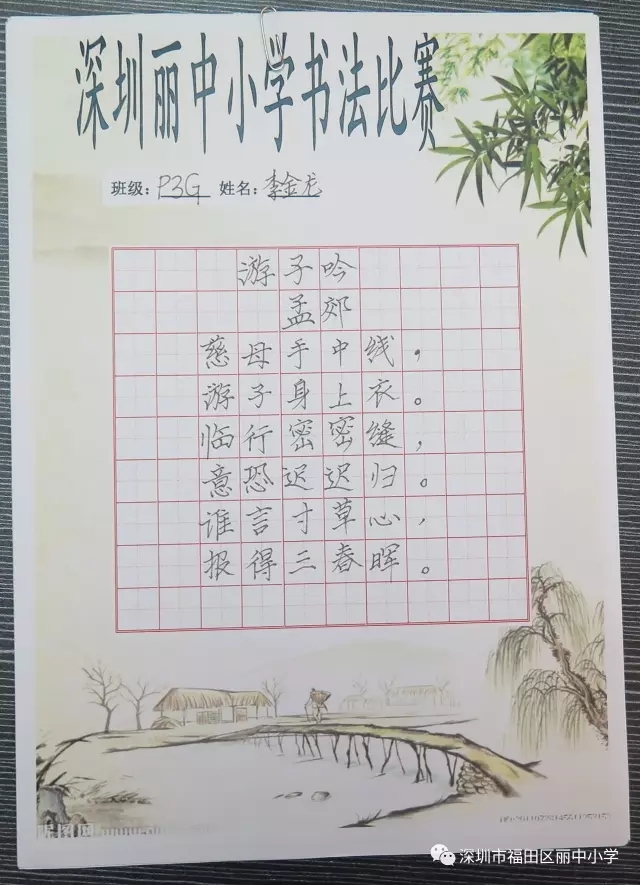 深圳丽中小学书法比赛
班级：P3G 姓名：李金龙
游子吟
孟郊
慈母手中线，
游子身上衣。
临行密密缝，
意恐迟迟归。
谁言寸草心，
报得三春晖。
昵图网
深圳市福田区丽中小学